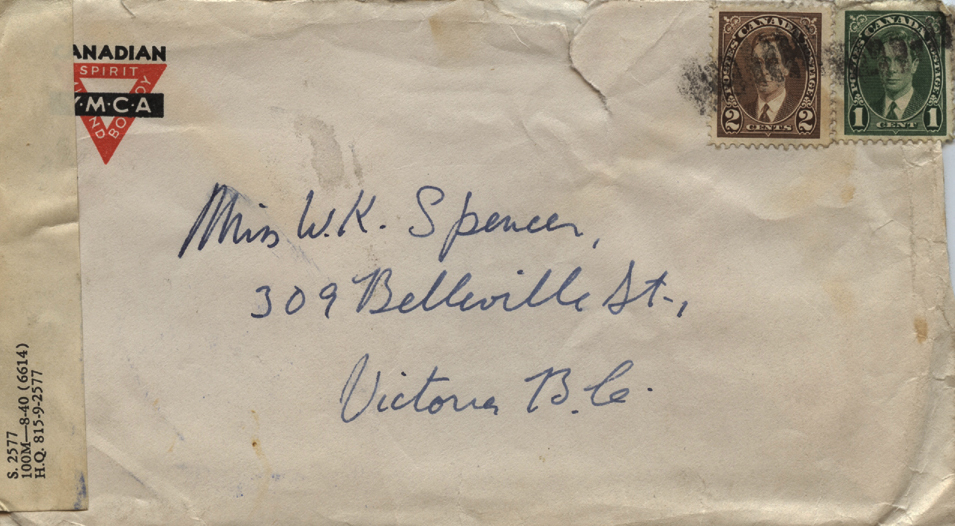 ANADIAN
SPIRIT
Y·M·C·A
MIND BODY
POSTES CANADA POSTAGE
2 CENTS 2
POSTES CANADA POSTAGE
1 CENT 1
Miss W.K. Spencer,
309 Belleville St.,
Victoria B.C.
S. 2577
100M—8-40 (6614)
H.Q. 815-9-2577